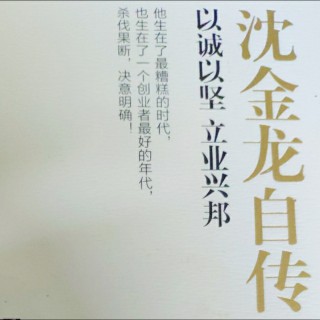 沈金龙自传
以诚以坚 立业兴邦
他生在了最糟糕的时代，
也生在了一个创业者最好的年代，
杀伐果断，决意明确！